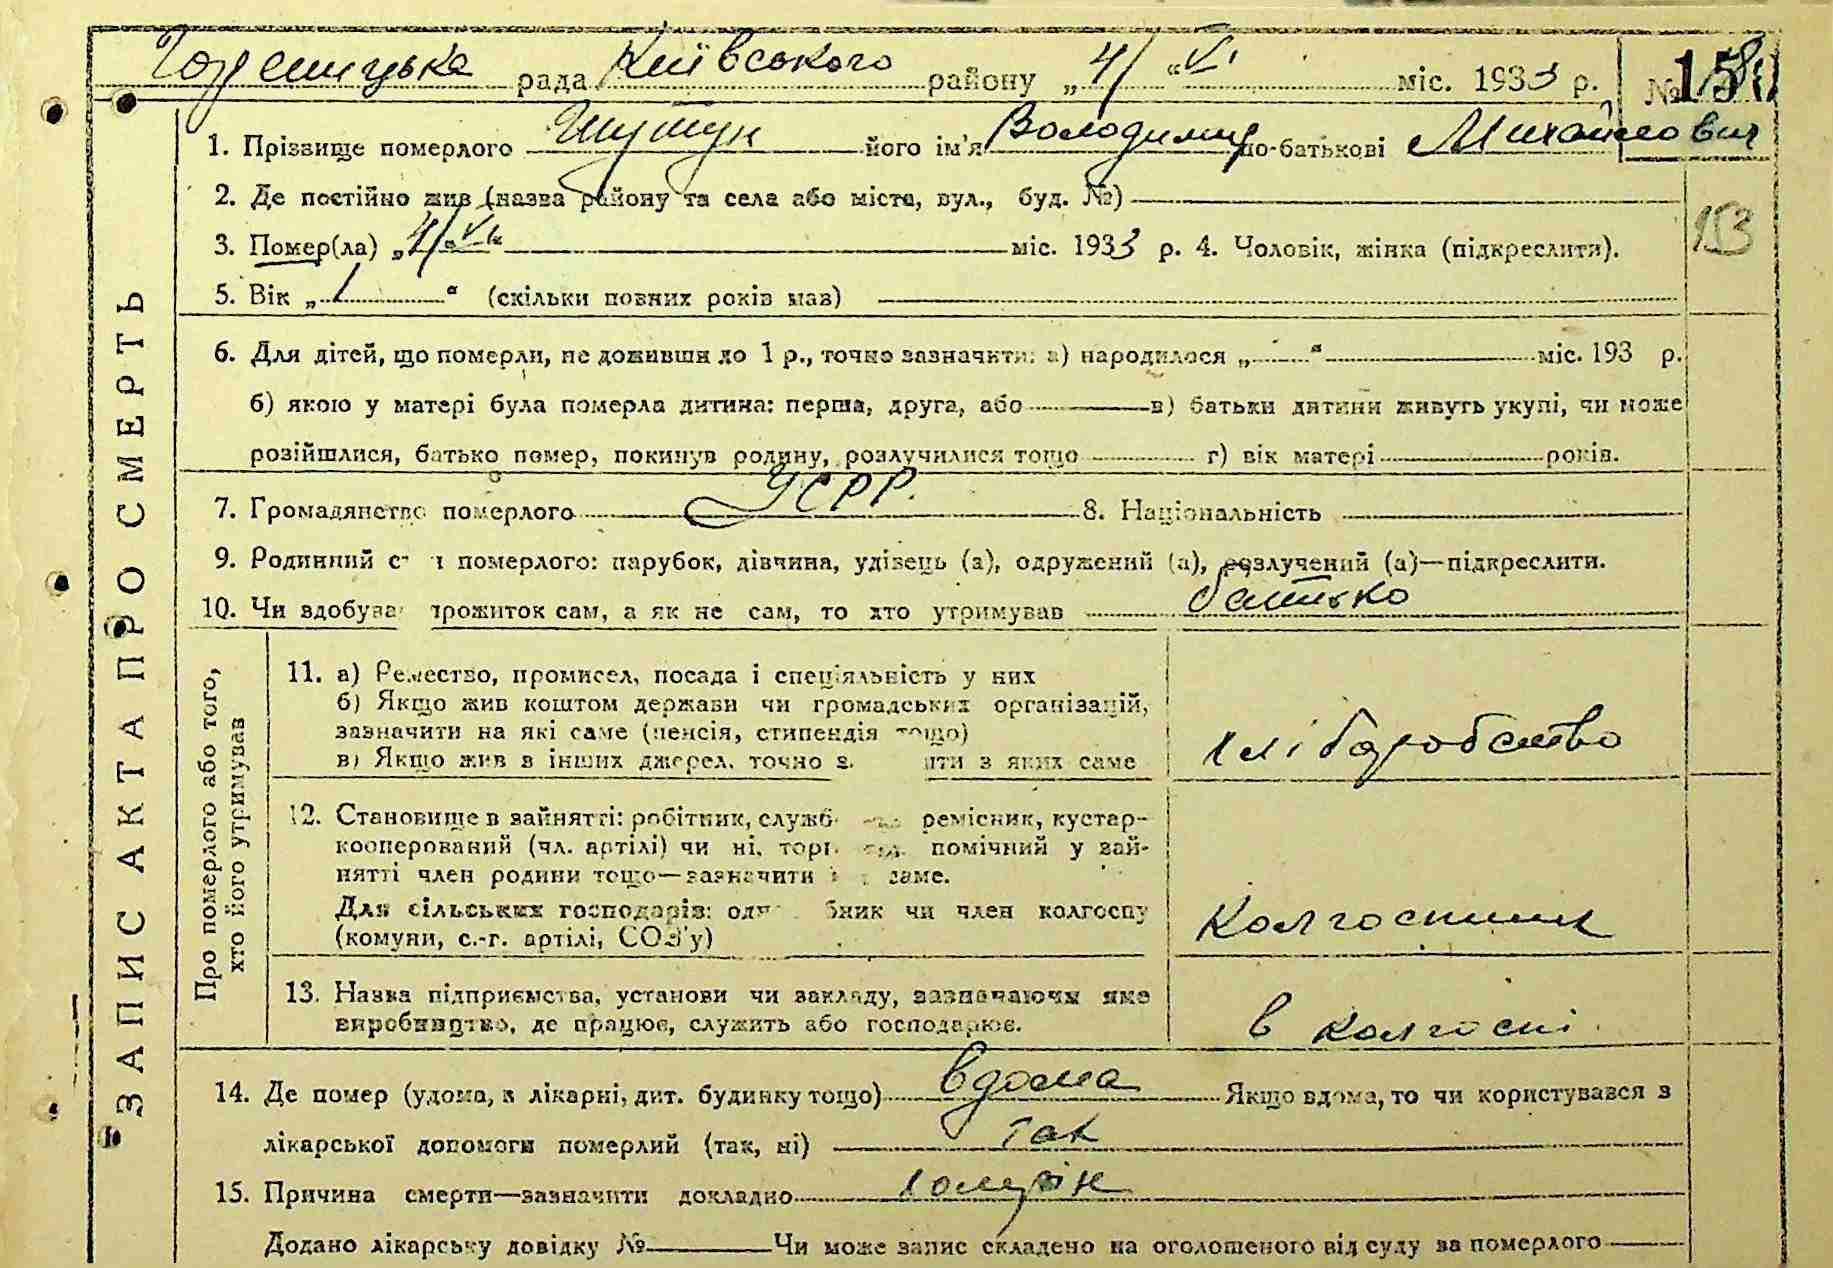 Гореницька рада Київського району „4" VI міс. 1933 р. №
1. Прізвище померлого Шутун його ім'я Володимир по-батькові Михайлович
2. Де постійно жив (назва району та села або міста, вул., буд. №)
153
3. Помер(ла) „4" VI міс. 1933 р. 4. Чоловік, жінка (підкреслити).
5. Вік „1" (скільки повних років мав)
6. Для дітей, що померли, не доживши до 1 р., точно зазначити: а) народилося „ " міс. 193 р.
б) якою у матері була померла дитина: перша, друга, або в) батьки дитини живуть укупі, чи може
розійшлися, батько помер, покинув родину, розлучилися тощо г) вік матері років.
7. Громадянство померлого УСРР. 8. Національність
9. Родинний с н померлого: парубок, дівчина, удівець (а), одружений (а), розлучений (а)—підкреслити.
10. Чи здобува прожиток сам, а як не сам, то хто утримував батько
ЗАПИС АКТА ПРО СМЕРТЬ
Про померлого або того,
хто його утримував
11. а) Ремество, промисел, посада і спеціяльність у них
б) Якщо жив коштом держави чи громадських організацій,
зазначити на які саме (пенсія, стипендія тощо)
в) Якщо жив з інших джерел, точно з ити з яких саме
хліборобство
12. Становище в зайнятті: робітник, служб ремісник, кустар-
кооперований (чл. артілі) чи ні, торг помічний у зай-
нятті член родини тощо—зазначити саме.
Для сільських господарів: одн бник чи член колгоспу
(комуни, с.-г. артілі, СОЗ'у)
колгоспник
13. Назва підприємства, установи чи закладу, зазначаючи яке
виробництво, де працює, служить або господарює.
в колгоспі
14. Де помер (удома, в лікарні, дит. будинку тощо) вдома Якщо вдома, то чи користувався з
лікарської допомоги померлий (так, ні) так
15. Причина смерти—зазначити докладно
Додано лікарську довідку № Чи може запис складено на оголошеного від суду за померлого